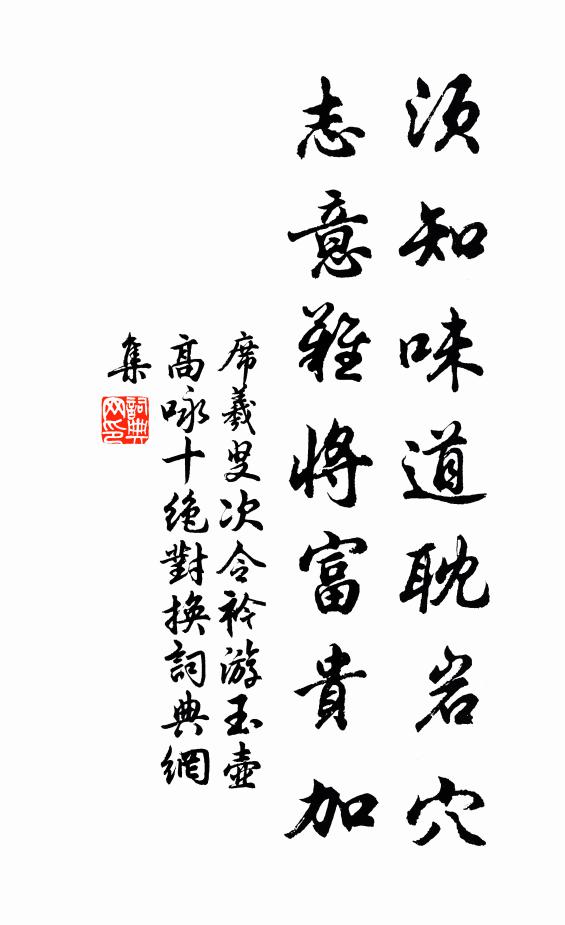 须知味道耽岩穴
志意难将富貴加
席羲叟次令衿游玉壺
高咏十絶對换詞典網
集
詞典网印